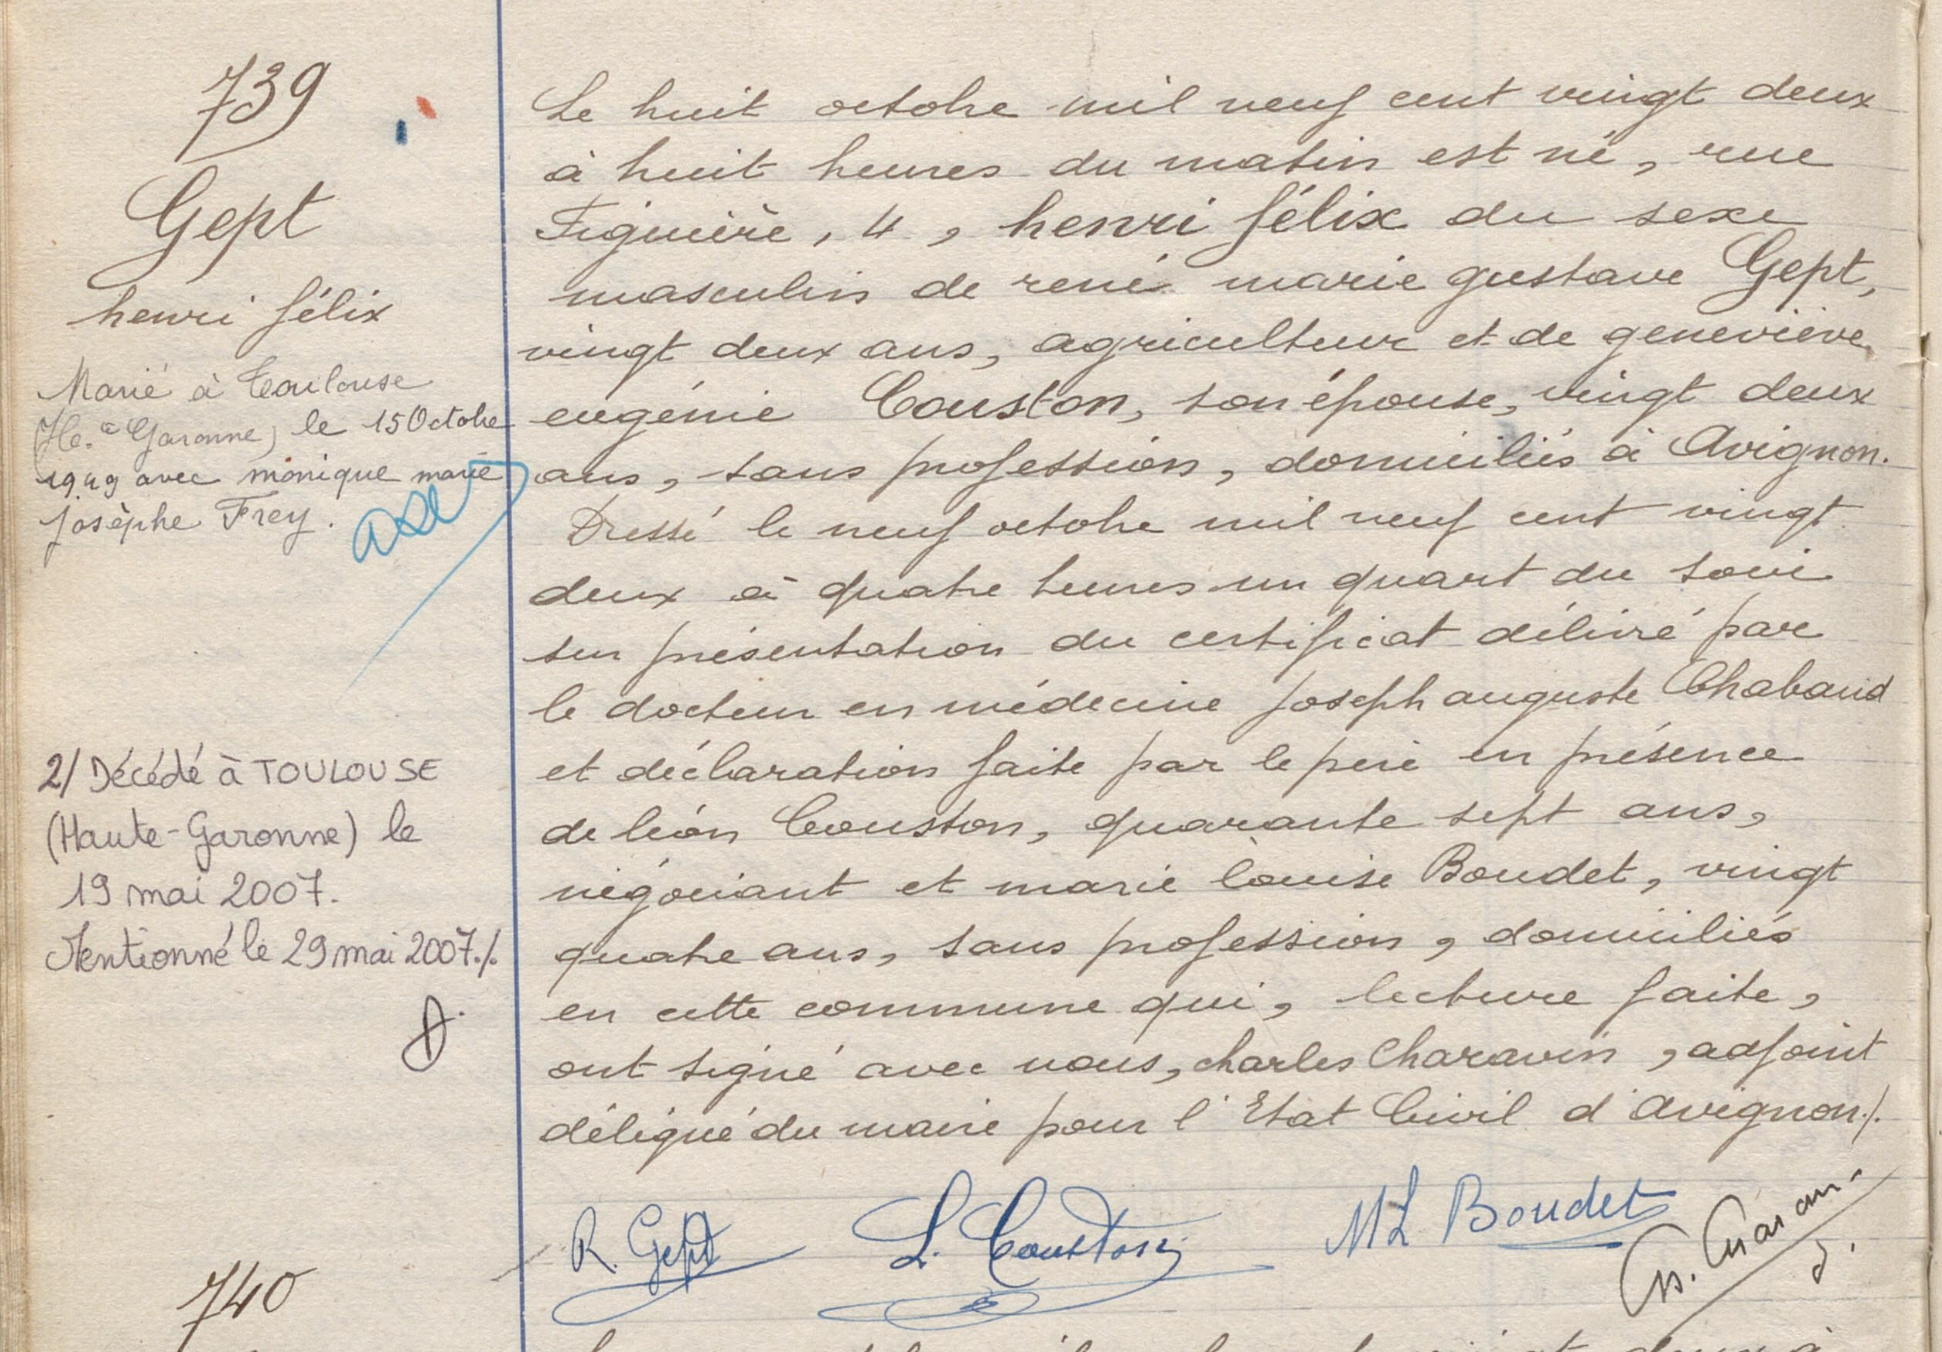 739
Gept
henri félix
Marié à Toulouse
(Hte Garonne) le 15 Octobre
1949 avec monique marie
Josèphe Frey.
2/ Décédé à TOULOUSE
(Haute-Garonne) le
19 mai 2007.
Mentionné le 29 mai 2007./.
Le huit octobre mil neuf cent vingt deux
à huit heures du matin est né, rue
Figuière, 4, henri félix du sexe
masculin de rené marie gustave Gept,
vingt deux ans, agriculteur et de geneviève
eugénie Couston, son épouse, vingt deux
ans, sans profession, domiciliés à Avignon.
Dressé le neuf octobre mil neuf cent vingt
deux à quatre heures un quart du soir
sur présentation du certificat délivré par
le docteur en médecine Joseph auguste Chabaud
et déclaration faite par le père en présence
de léon Couston, quarante sept ans,
négociant et marie louise Boudet, vingt
quatre ans, sans profession, domiciliés
en cette commune qui, lecture faite,
ont signé avec nous, charles Charavin, adjoint
délégué du maire pour l'Etat Civil d'Avignon./.
R. Gept L. Couston ML Boudet
740